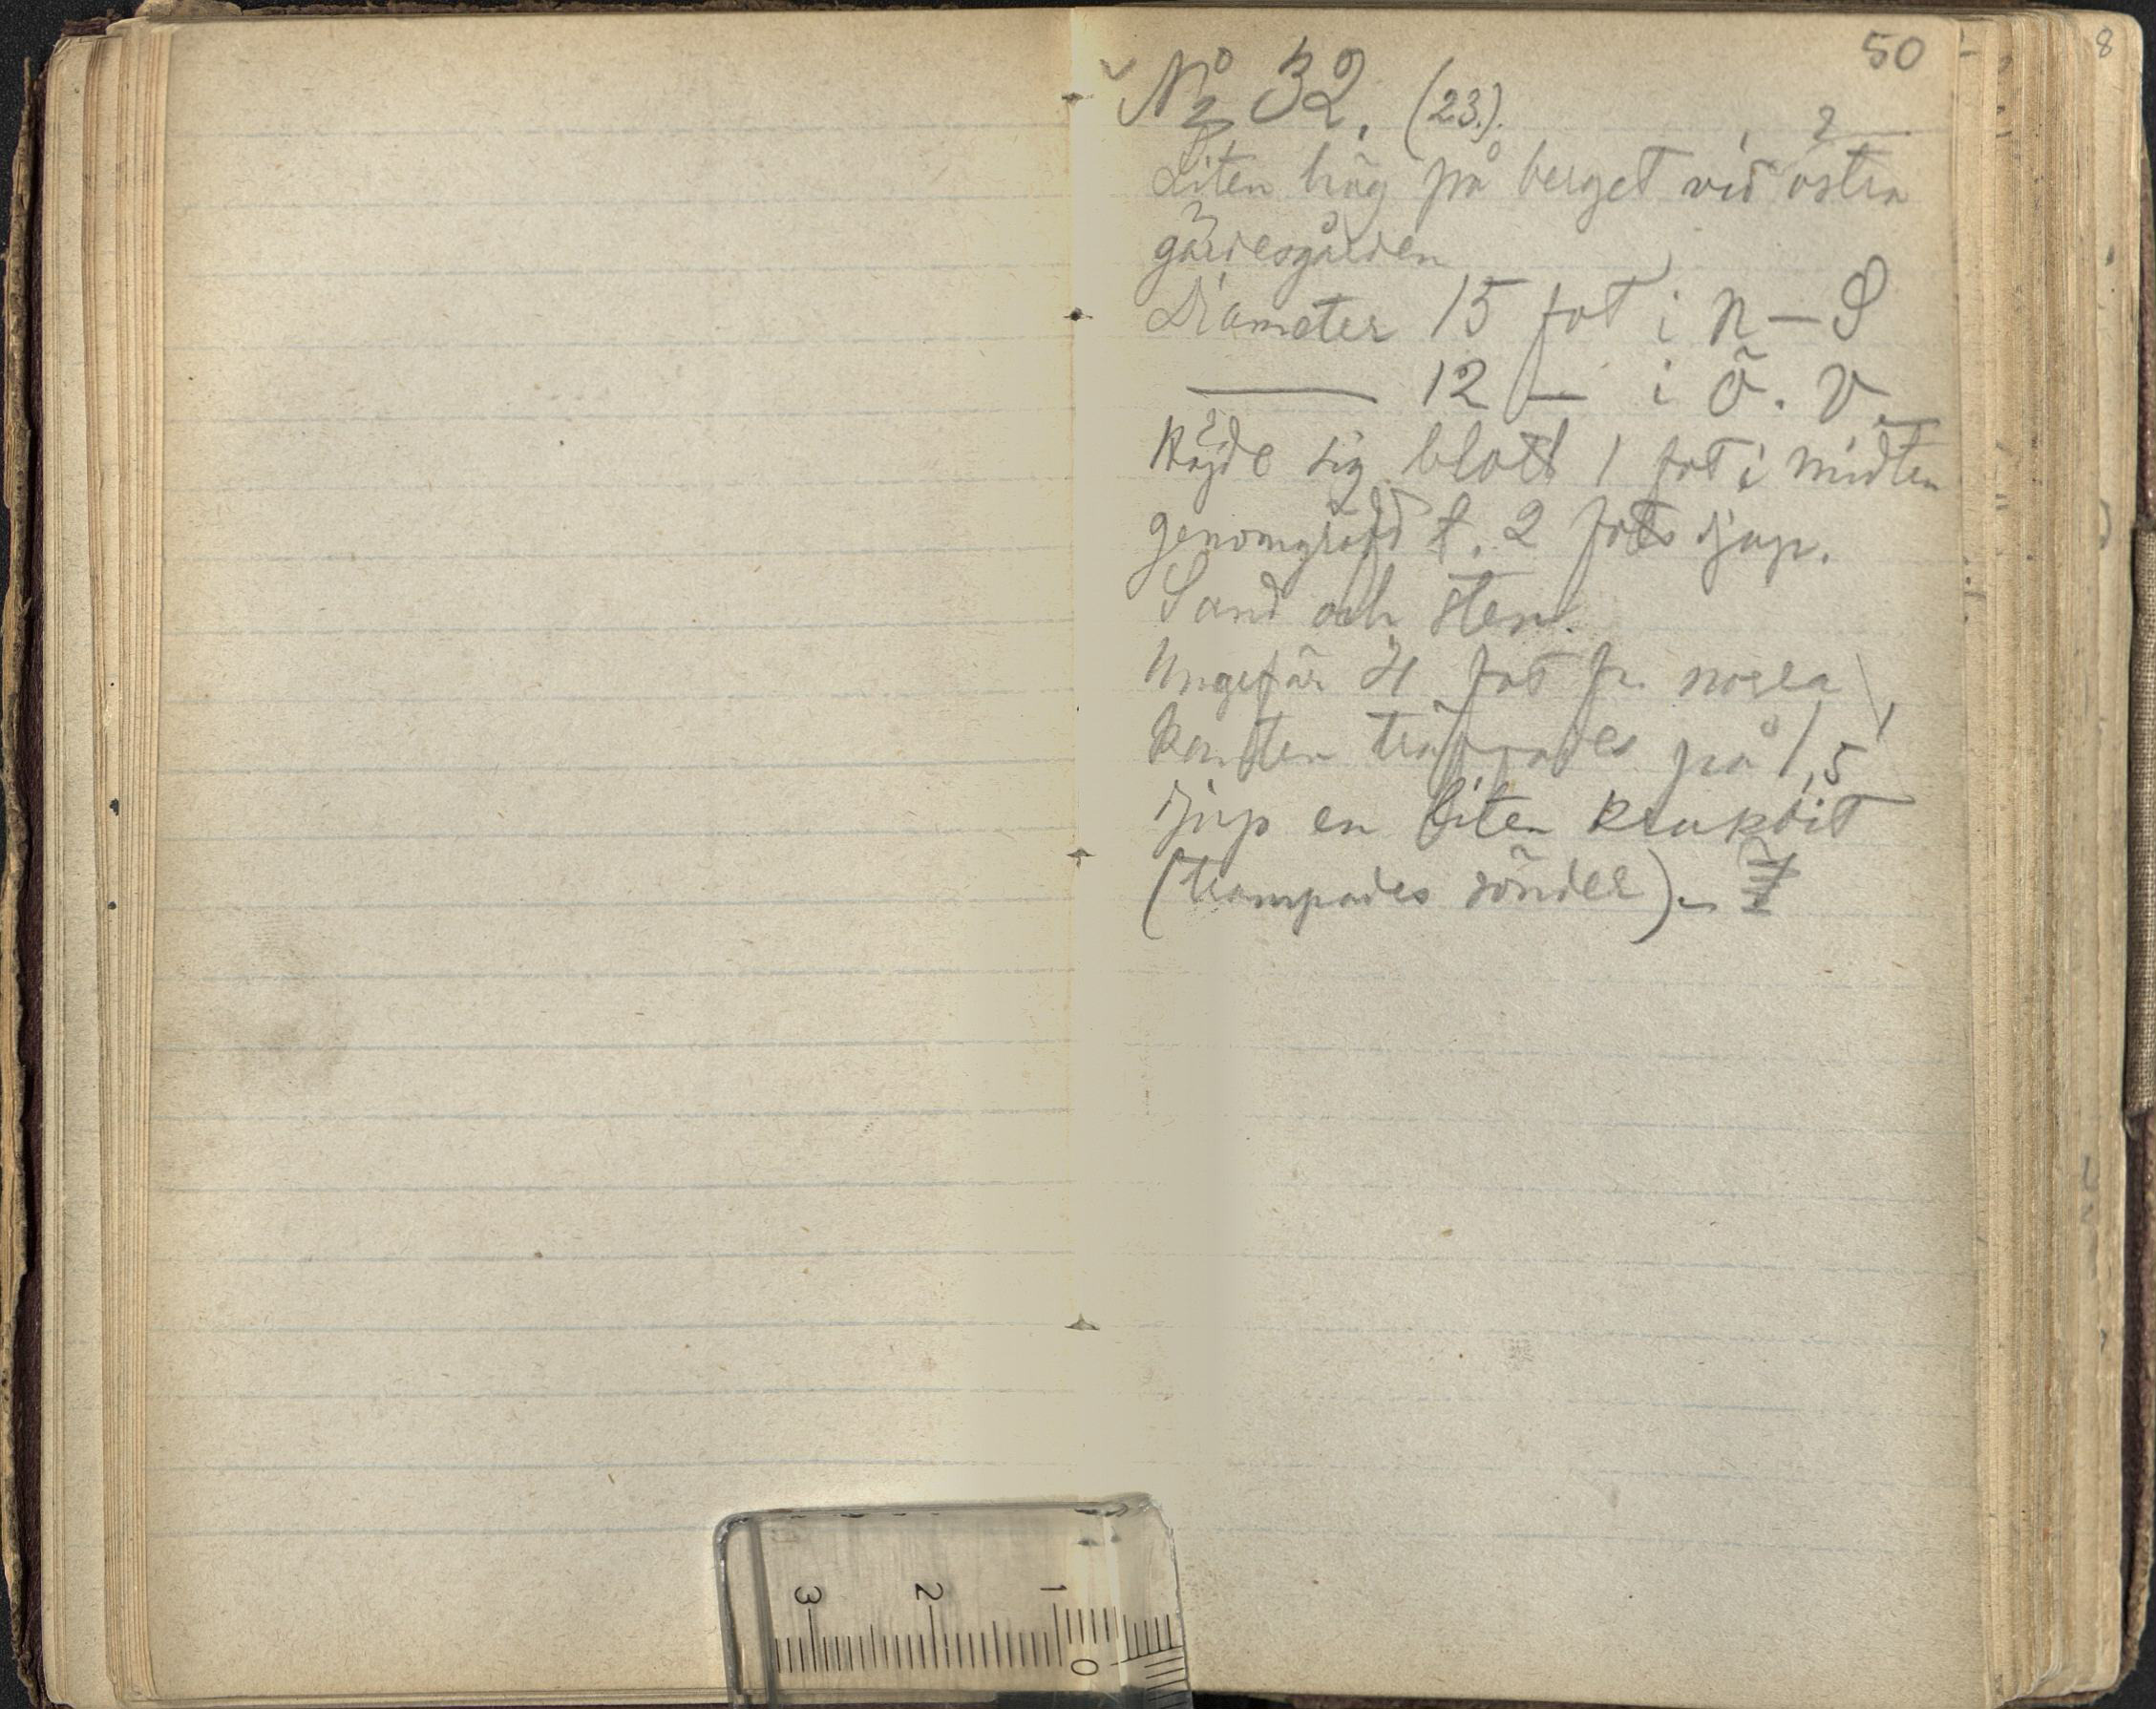 50
8
No 32. (23.)
Liten hög på berget vid östra
gärdesgården
Diameter 15 fot i n – S
—— 12 — i ö. v.
Höjde sig blott 1 fot i midten
genomgräfd t. 2 fots djup.
Sand och sten.
Ungefär 4 fot fr. norra
kanten träffades på 1,5'
djup en liten krukbit
(trampades sönder). –
3 2 1 0